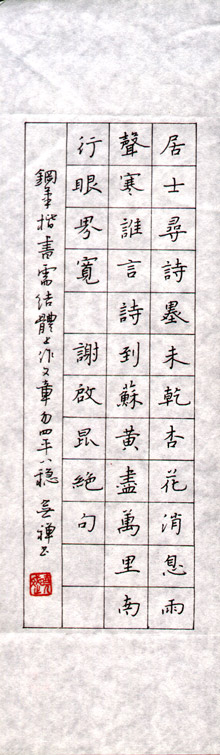 居士尋詩墨未乾杏花消息雨
聲寒誰言詩到蘇黃盡萬里南
行眼界寬 謝啟昆絕句
鋼筆楷書需結體上作文章勿四平八穩 禪书